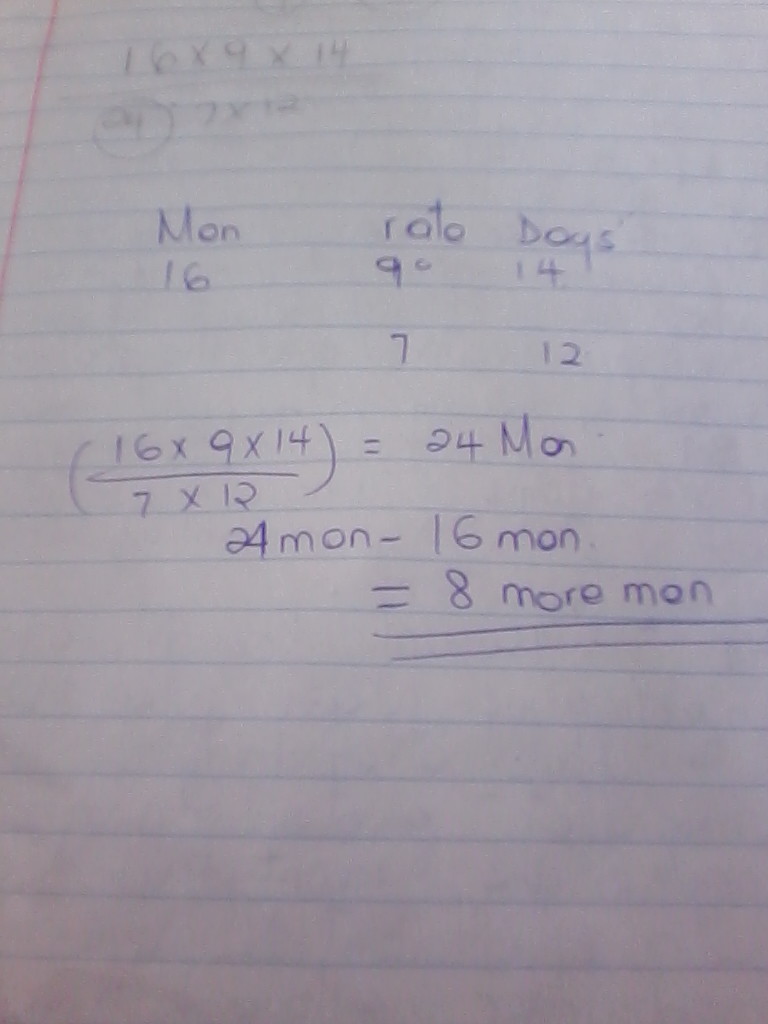 16 x 9 x 14
24 7 x 12
Men rate Days
16 9 14
7 12
(16 x 9 x 14 / 7 x 12) = 24 Men
24 men - 16 men.
= 8 more men